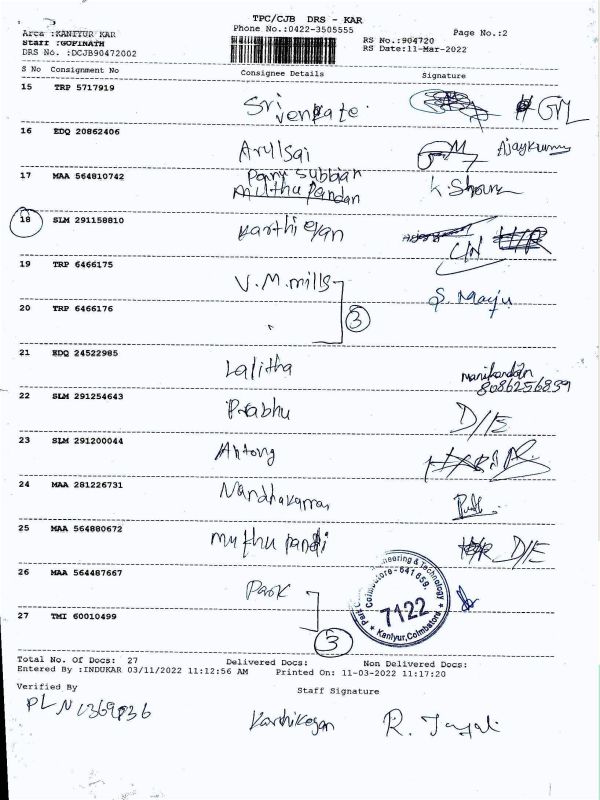 TPC/CJB DRS - KAR
Phone No.:0422-3505555
Area :KANIYUR KAR
Staff :GOPINATH
DRS No. :DCJB90472002
RS No.:904720
RS Date:11-Mar-2022
Page No.:2
S No Consignment No Consignee Details Signature
15 TRP 5717919 Sri venkate GVL
16 EDQ 20862406 Arulsai Ajaykumar
17 MAA 564810742 Muthu Pandan
18 SLM 291158810 Karthi eyan
19 TRP 6466175 V.M.mills
20 TRP 6466176 3
21 EDQ 24522985 Lalitha manikandan
22 SLM 291254643 Prabhu D/E
23 SLM 291200044 Antony
24 MAA 281226731
25 MAA 564880672 muthu pandi D/E
26 MAA 564487667 Park
7122
Kaniyur, Coimbatore
27 TMI 60010499 3
Total No. Of Docs: 27 Delivered Docs: Non Delivered Docs:
Entered By :INDUKAR 03/11/2022 11:12:56 AM Printed On: 11-03-2022 11:17:20
Verified By Staff Signature
Karthikeyan